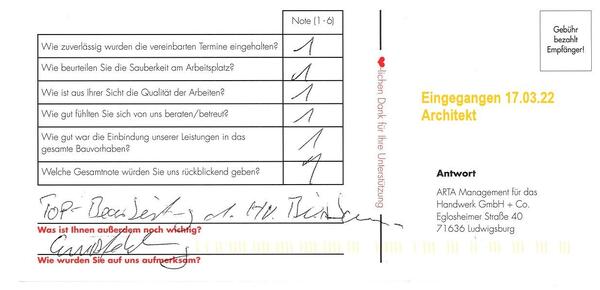 Note (1 - 6)
Wie zuverlässig wurden die vereinbarten Termine eingehalten? 1
Wie beurteilen Sie die Sauberkeit am Arbeitsplatz? 1
Wie ist aus Ihrer Sicht die Qualität der Arbeiten? 1
Wie gut fühlten Sie sich von uns beraten/betreut? 1
Wie gut war die Einbindung unserer Leistungen in das
gesamte Bauvorhaben? 1
Welche Gesamtnote würden Sie uns rückblickend geben? 1
TOP-
Was ist Ihnen außerdem noch wichtig?
Wie wurden Sie auf uns aufmerksam?
-lichen Dank für Ihre Unterstützung
Gebühr
bezahlt
Empfänger!
Eingegangen 17.03.22
Architekt
Antwort
ARTA Management für das
Handwerk GmbH + Co.
Eglosheimer Straße 40
71636 Ludwigsburg